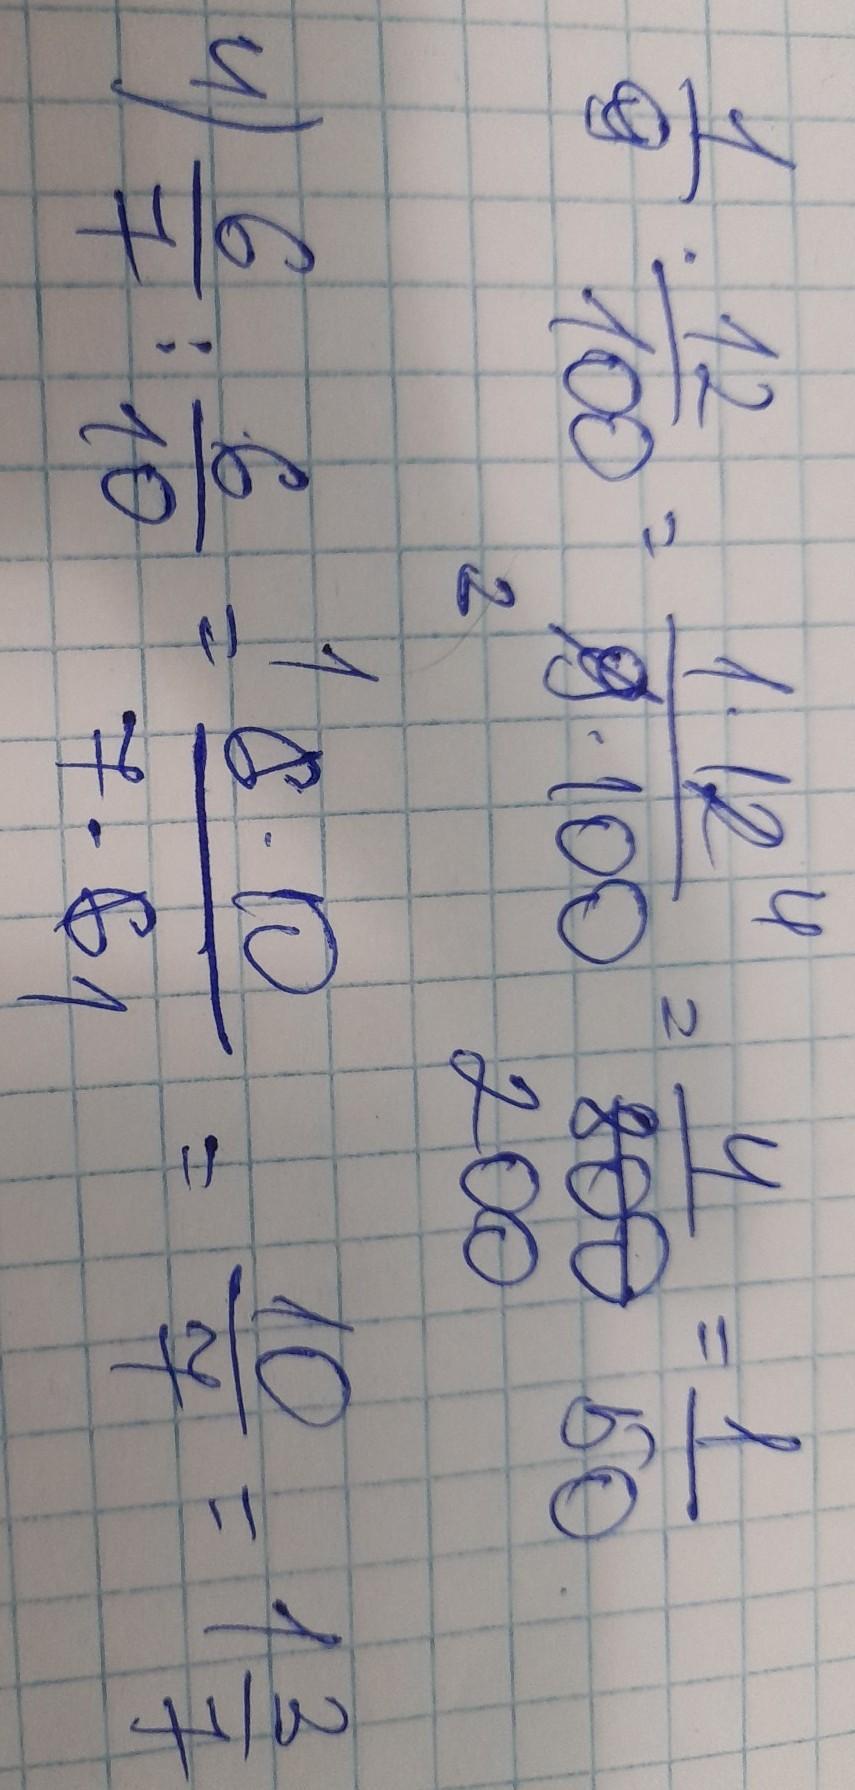 1/8 · 12/100 = 1·12 4/8·100 2 = 4/800 200 = 1/50
4) 6/7 : 6/10 = 1 6·10/7·6 1 = 10/7 = 1 3/7